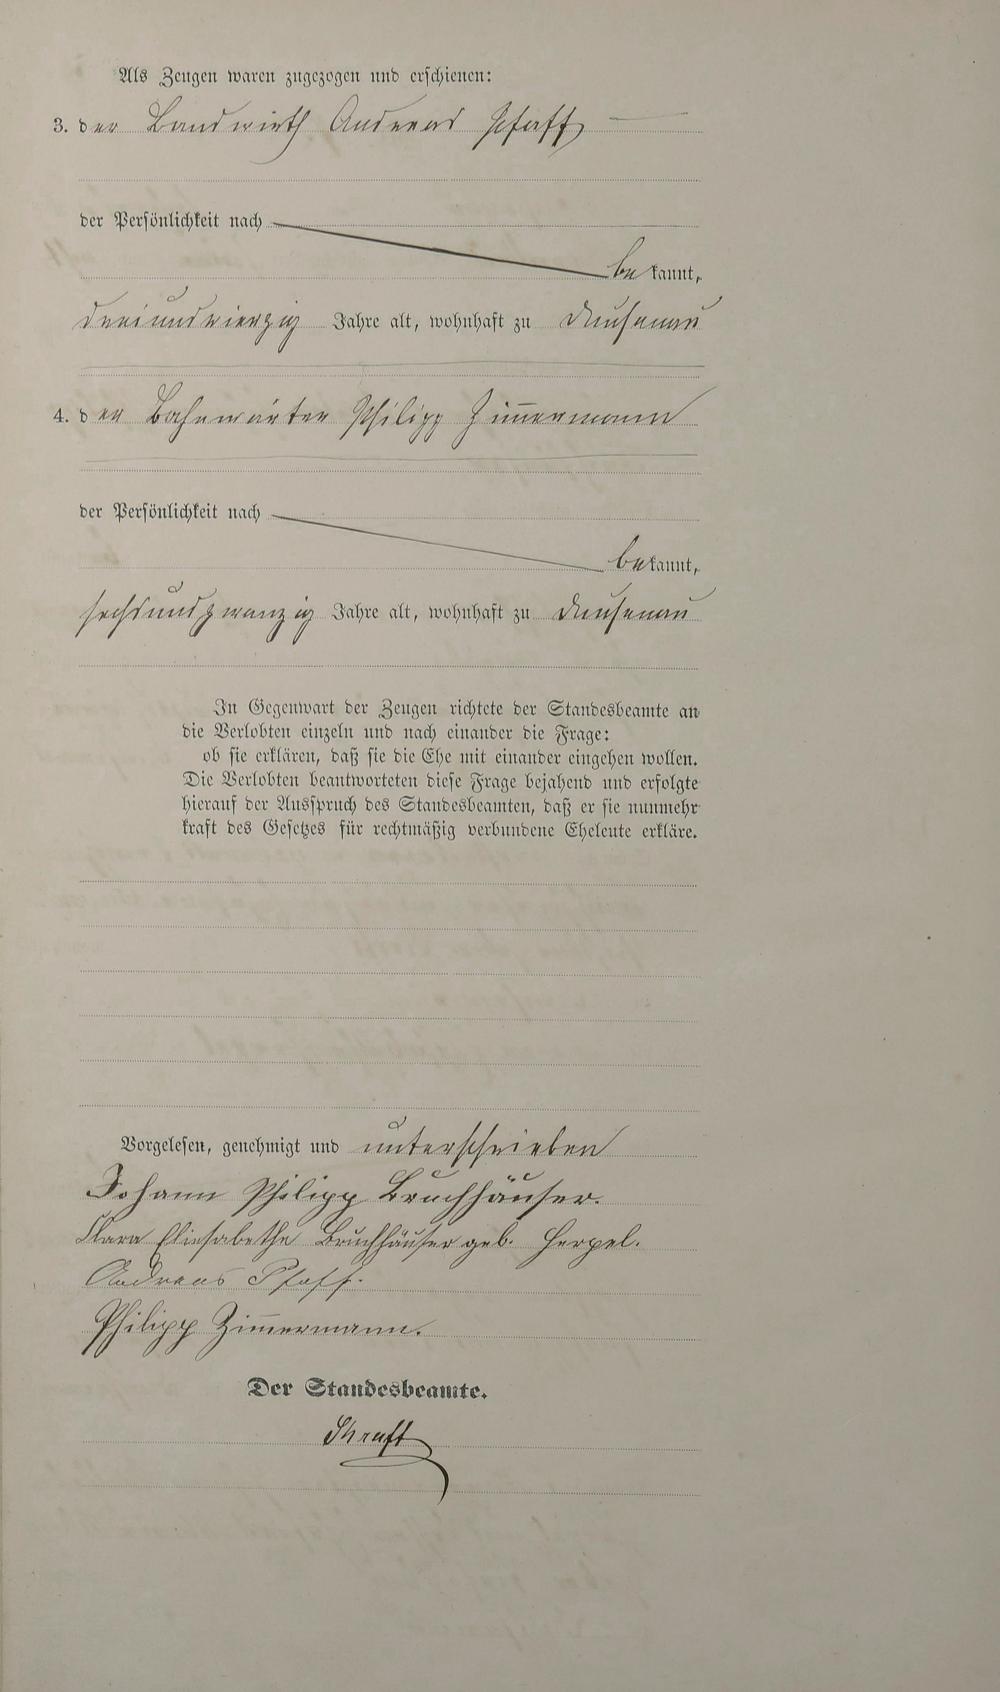 Als Zeugen waren zugezogen und erschienen:
3. der Landwirth Andreas Pfaff
der Persönlichkeit nach
bekannt,
dreiundvierzig Jahre alt, wohnhaft zu Dausenau
4. der Bahnwärter Philipp Zimmermann
der Persönlichkeit nach
bekannt,
sechsundzwanzig Jahre alt, wohnhaft zu Dausenau
In Gegenwart der Zeugen richtete der Standesbeamte an
die Verlobten einzeln und nach einander die Frage:
ob sie erklären, daß sie die Ehe mit einander eingehen wollen.
Die Verlobten beantworteten diese Frage bejahend und erfolgte
hierauf der Ausspruch des Standesbeamten, daß er sie nunmehr
kraft des Gesetzes für rechtmäßig verbundene Eheleute erkläre.
Vorgelesen, genehmigt und unterschrieben
Johann Philipp Bruchhäuser.
Clara Eliesabethe Bruchhäuser geb. Herpel.
Andreas Pfaff.
Philipp Zim̅ermann.
Der Standesbeamte.